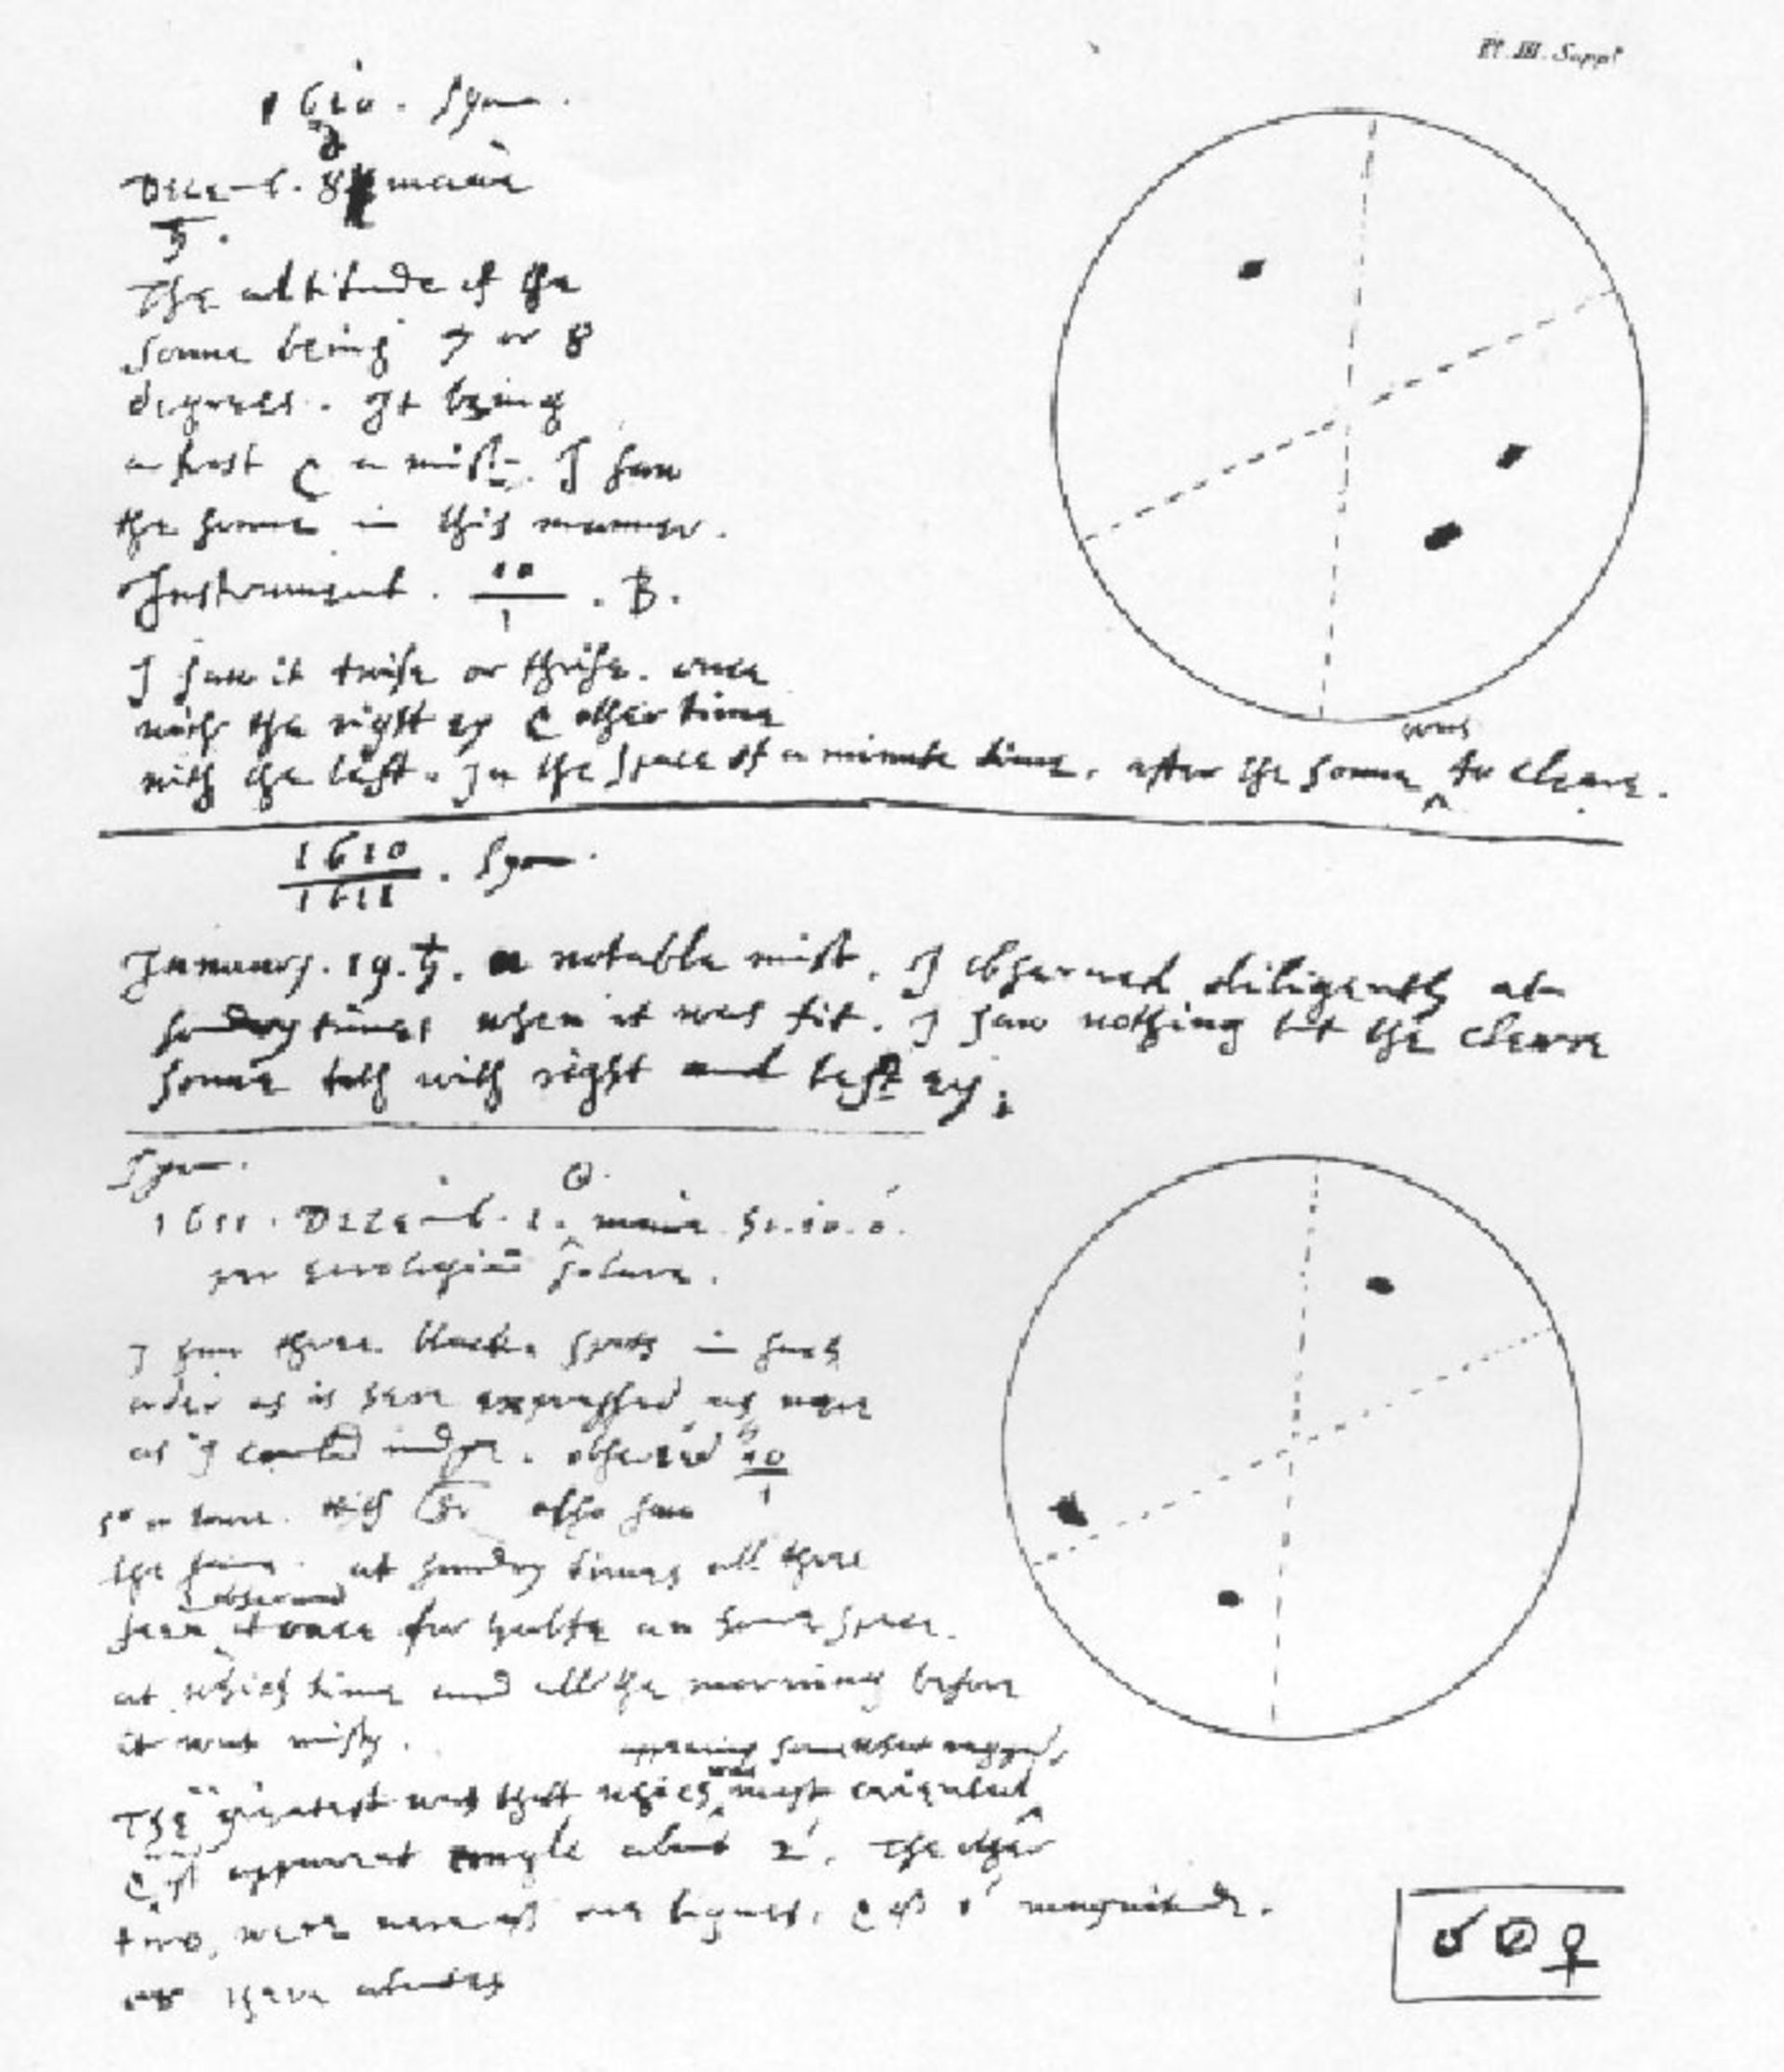 Pl. III. Suppt
1610. Syon.
Decemb. 8 mane
♄.
The altitude of the
sonne being 7 or 8
degrees. It being
a frost & a mist. I saw
the sonne in this manner.
Instrument. 10/1 . B.
I saw it twise or thrise. once
with the right ey & other time
with the left. In the space of a minute time, after the sonne was to cleare.
1610/1611 . Syon.
January. 19. ♄. a notable mist. I observed diligently at
sondry times when it was fit. I saw nothing but the cleare
sonne both with right and left ey.
Syon.
☉.
1611. Decemb. 1. mane. ho.10.0.
per horologiū solare.
I saw three blacke spots in such
order as is here expressed as nere
as I could iudge. observed 10/1
also saw
the same. at sondry times all three
seen I observed at once for halfe an houre space.
at which time and all the morning before
it was misty.
appearing somewhat ragged,
The greatest was that which was most
& of apparent angle about 2'. The other
two, were nere of one bignes, & of 1' magnitude.
or there aboutes
☌ ☉ ♀